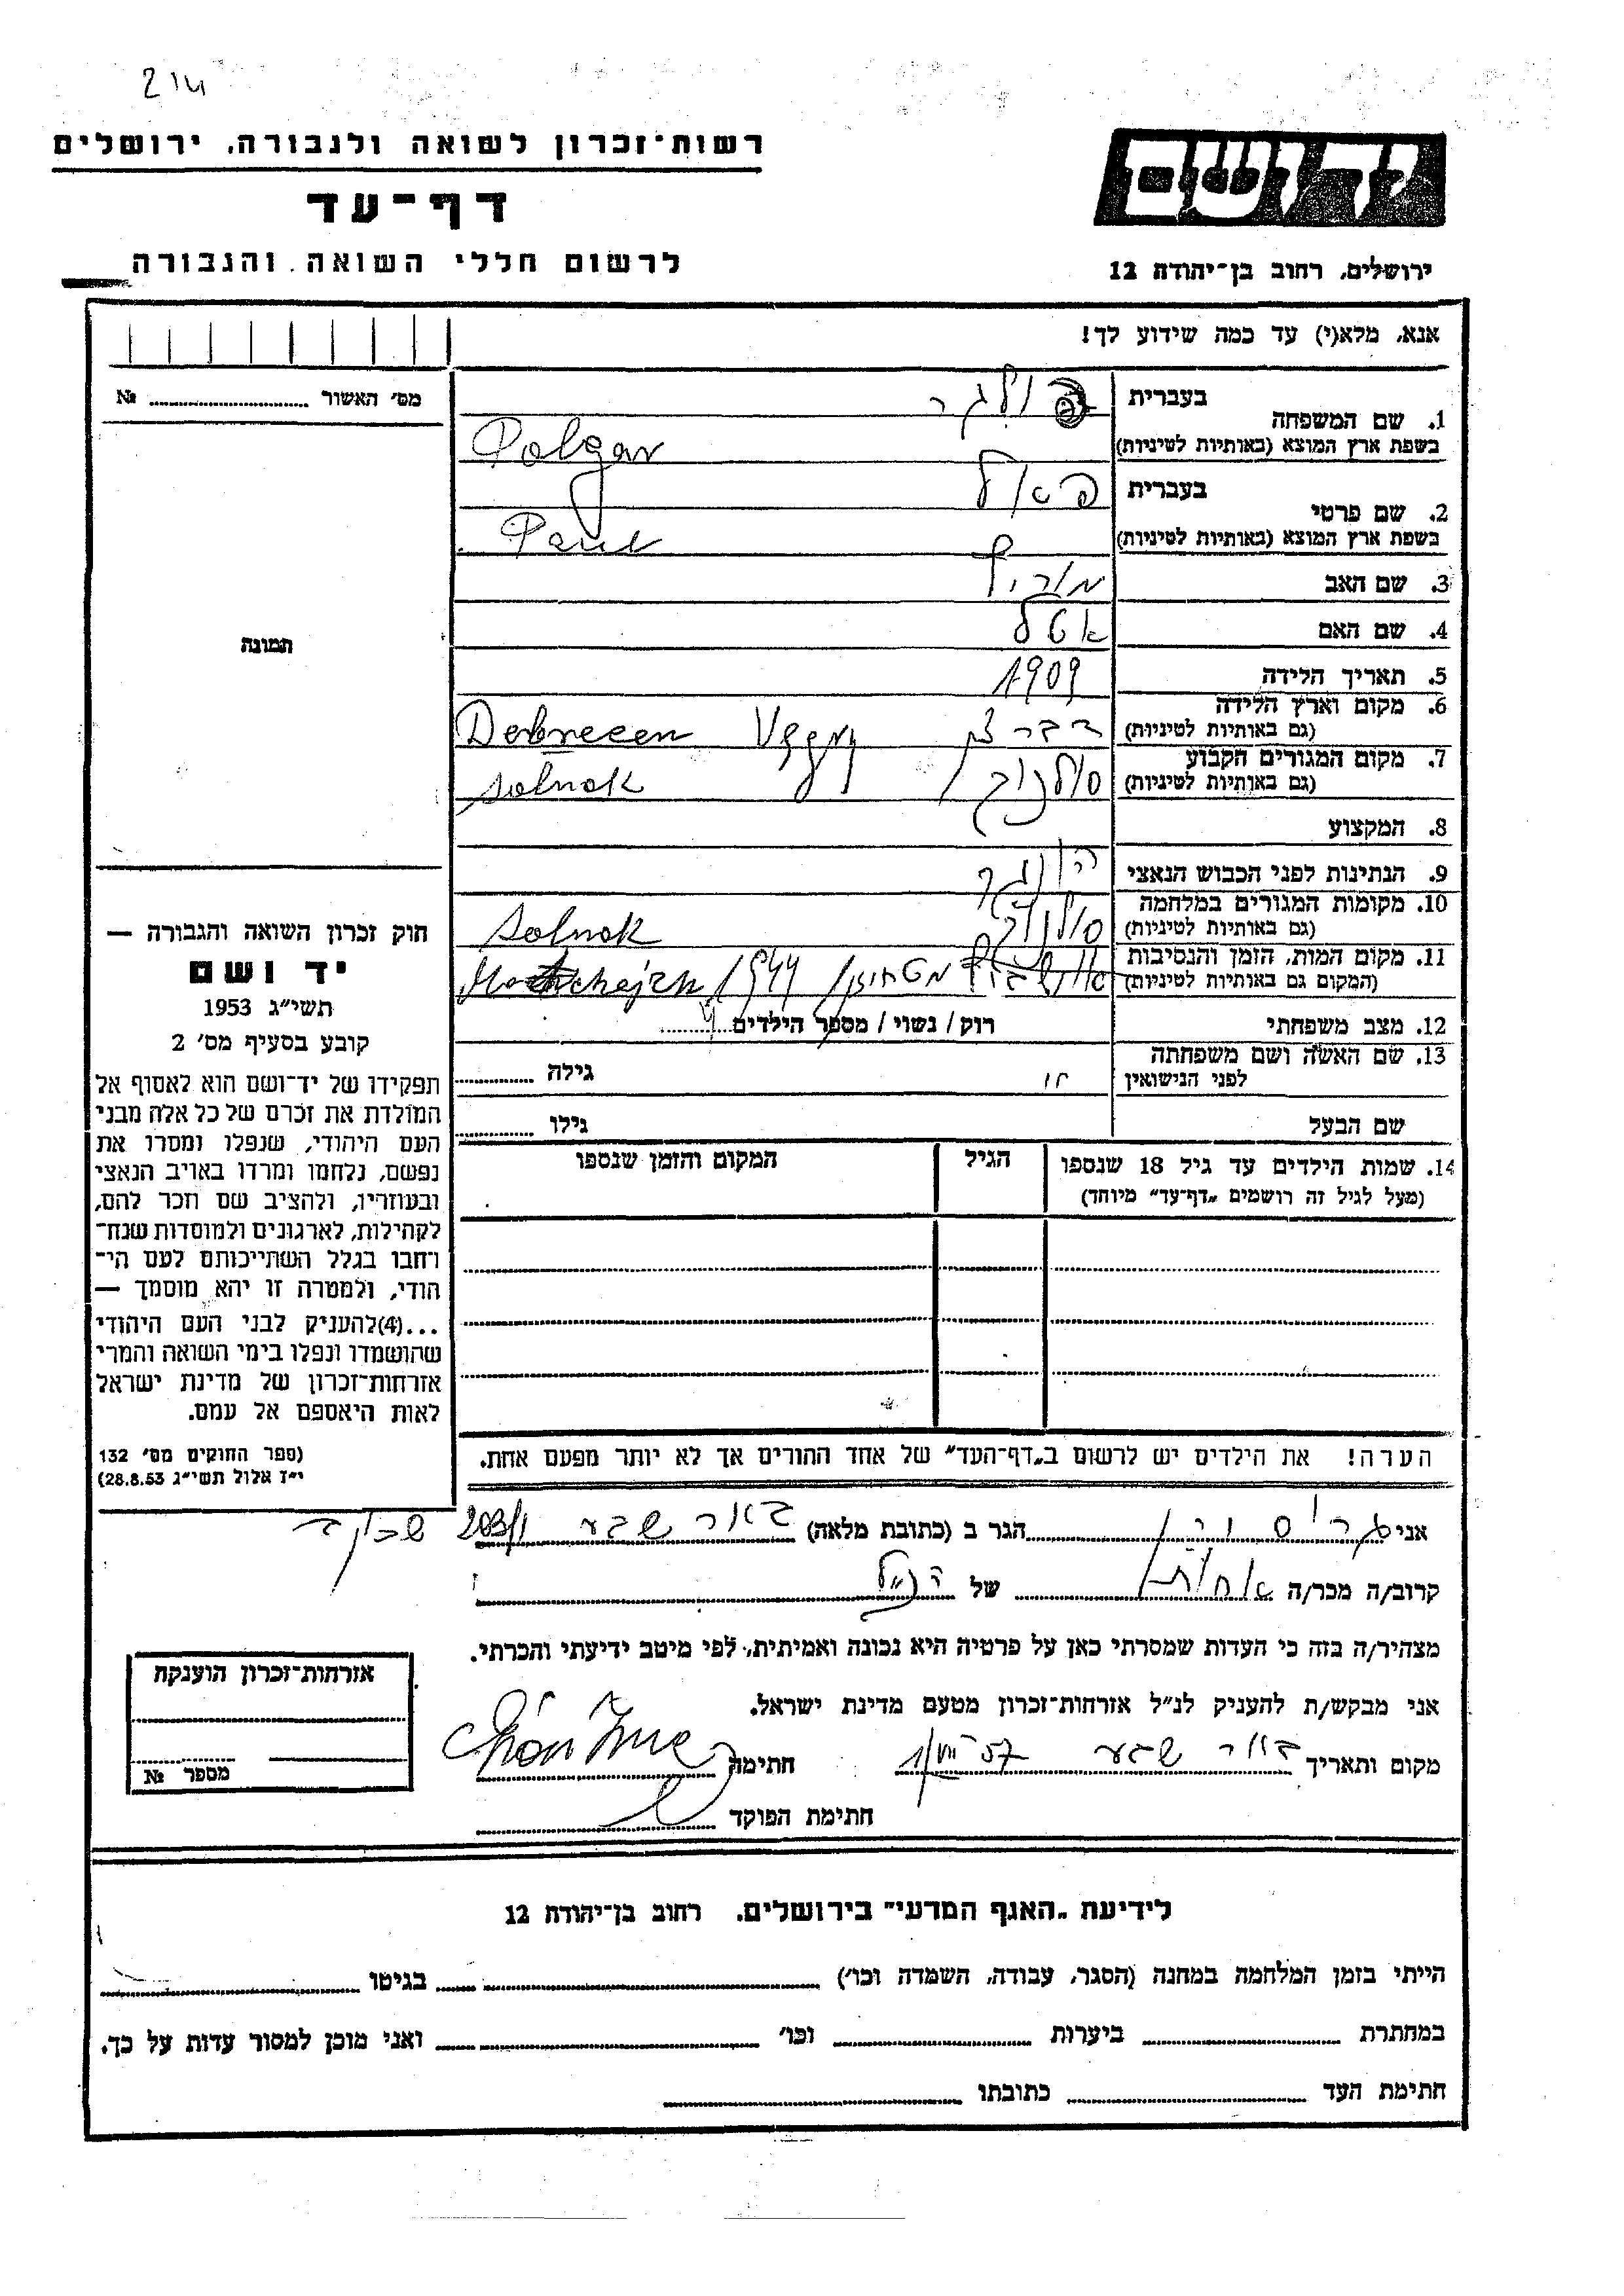 214
רשות־זכרון לשואה ולגבורה, ירושלים
דף־עד
לרשום חללי השואה והגבורה
יד ושם
ירושלים, רחוב בן־יהודה 12
אנא, מלא(י) עד כמה שידוע לך!
מס׳ האשור № ..........
תמונה
1. שם המשפחה
בעברית פולגר
בשפת ארץ המוצא (באותיות לטיניות) Polgar
2. שם פרטי
בעברית פאול
בשפת ארץ המוצא (באותיות לטיניות) Paul
3. שם האב מוריץ
4. שם האם אטל
5. תאריך הלידה 1909
6. מקום וארץ הלידה
(גם באותיות לטיניות) דברצן Debrecen
7. מקום המגורים הקבוע
(גם באותיות לטיניות) סולנוק Solnok
8. המקצוע
9. הנתינות לפני הכבוש הנאצי הונגר
10. מקומות המגורים במלחמה
(גם באותיות לטיניות) סולנוק Solnok
11. מקום המות, הזמן והנסיבות
(המקום גם באותיות לטיניות) 1944
12. מצב משפחתי רוק / נשוי / מספר הילדים ..........
13. שם האשה ושם משפחתה
לפני הנישואין גילה ..........
שם הבעל גילו ..........
14. שמות הילדים עד גיל 18 שנספו
(מעל לגיל זה רושמים „דף־עד״ מיוחד)
הגיל
המקום והזמן שנספו
הערה! את הילדים יש לרשום ב„דף־העד״ של אחד ההורים אך לא יותר מפעם אחת.
חוק זכרון השואה והגבורה —
יד ושם
תשי״ג 1953
קובע בסעיף מס׳ 2
תפקידו של יד־ושם הוא לאסוף אל
המולדת את זכרם של כל אלה מבני
העם היהודי, שנפלו ומסרו את
נפשם, נלחמו ומרדו באויב הנאצי
ובעוזריו, ולהציב שם וזכר להם,
לקהילות, לארגונים ולמוסדות שנח־
רחבו בגלל השתייכותם לעם הי־
הודי, ולמטרה זו יהא מוסמך —
...(4) להעניק לבני העם היהודי
שהושמדו ונפלו בימי השואה והמרי
אזרחות־זכרון של מדינת ישראל
לאות היאספם אל עמם.
(ספר החוקים מס׳ 132
י״ז אלול תשי״ג 28.8.53)
אני הגר ב (כתובת מלאה) באר שבע 203/1
קרוב/ה מכר/ה אחות של הנ״ל
מצהיר/ה בזה כי העדות שמסרתי כאן על פרטיה היא נכונה ואמיתית, לפי מיטב ידיעתי והכרתי.
אני מבקש/ת להעניק לנ״ל אזרחות־זכרון מטעם מדינת ישראל.
מקום ותאריך באר שבע 1/VII 57 חתימה
חתימת הפוקד
אזרחות־זכרון הוענקה
מספר №
לידיעת „האגף המדעי״ בירושלים, רחוב בן־יהודה 12
הייתי בזמן המלחמה במחנה (הסגר, עבודה, השמדה וכו׳) .......... בגיטו ..........
במחתרת .......... ביערות .......... וכו׳ .......... ואני מוכן למסור עדות על כך.
חתימת העד .......... כתובתו ..........